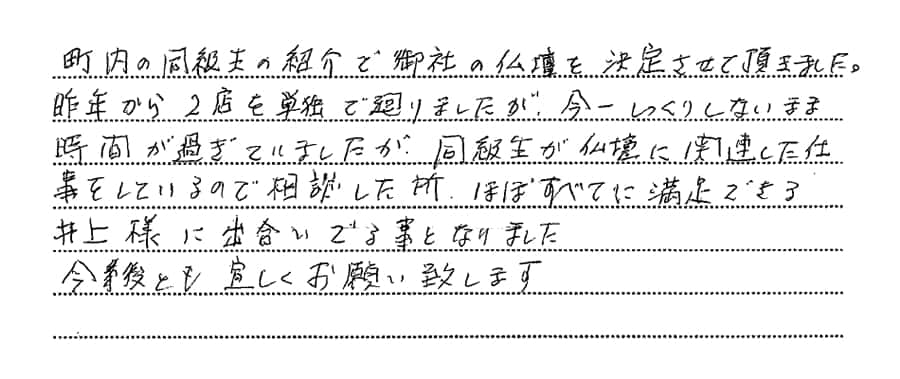 町内の同級生の紹介で御社の仏壇を決定させて頂きました。
昨年から2店を単独で廻りましたが、今一しっくりしないまま
時間が過ぎていましたが、同級生が仏壇に関連した仕
事をしているので相談した所、ほぼすべてに満足できる
井上様に出合いできる事となりました
今後とも宜しくお願い致します